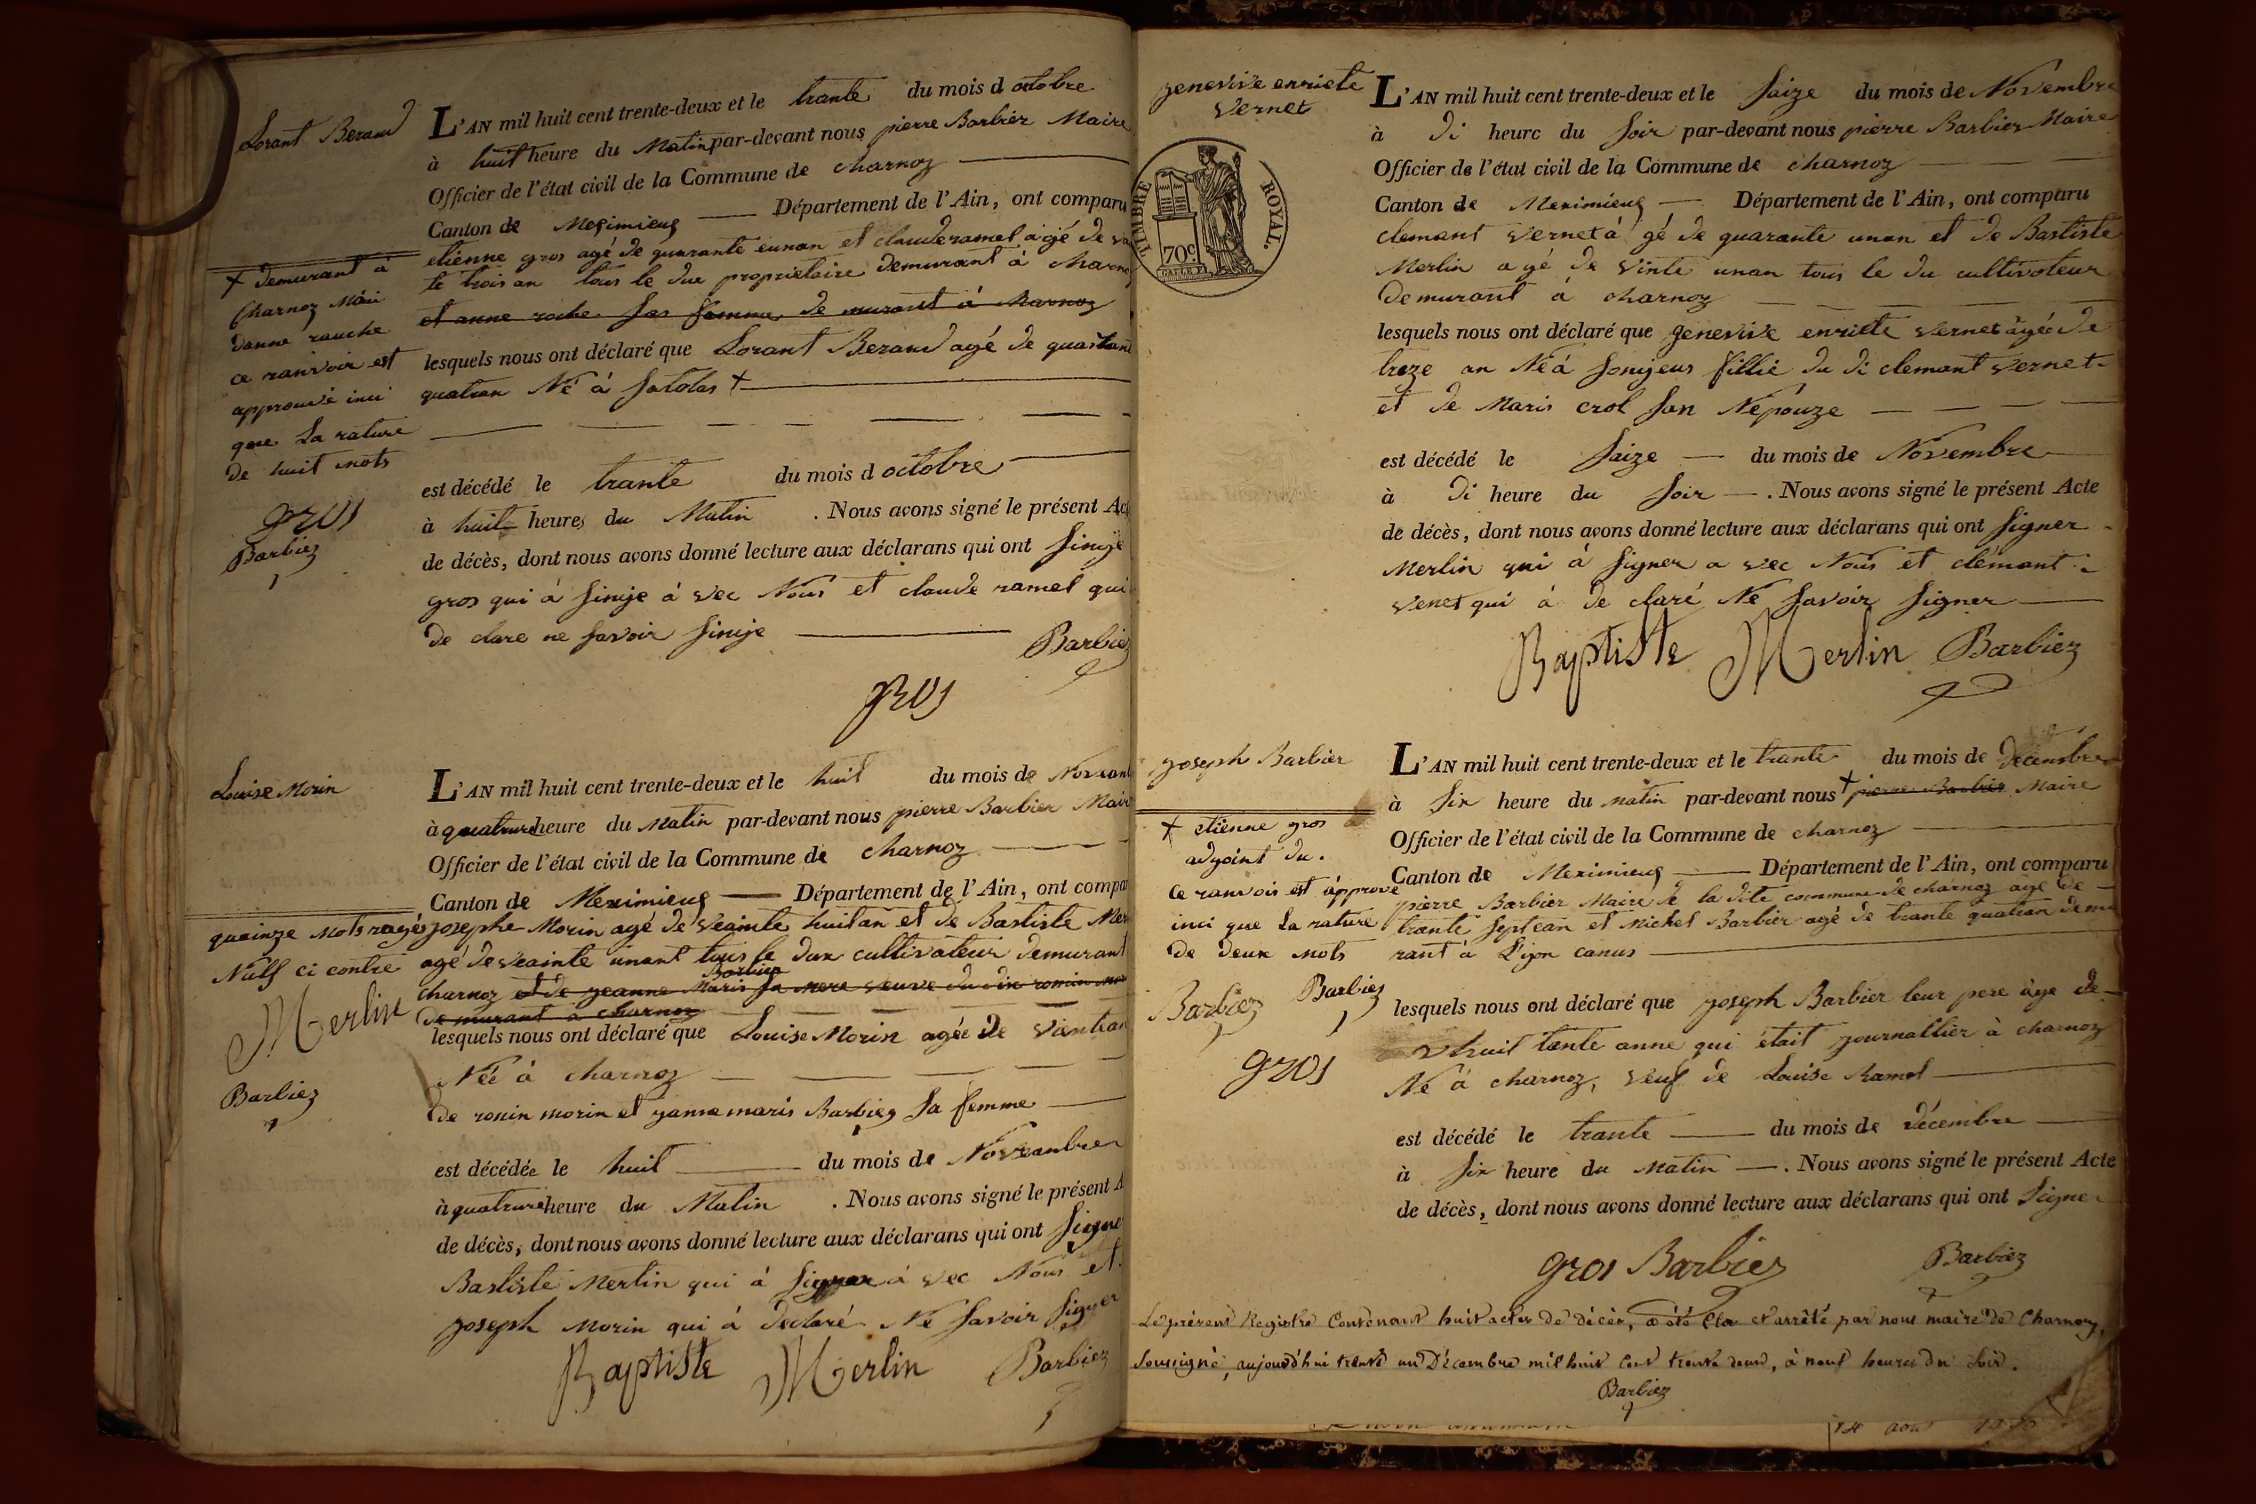 Lorant Beraud
L'AN mil huit cent trente-deux et le trante du mois d octobre
à huit heure du Matin par-devant nous pierre Barbier Maire
Officier de l'état civil de la Commune de charnoz
Canton de Meximieux Département de l'Ain, ont comparu
etienne gros agé de quarante eunan et claude ramel agé de
te trois an tous le due proprietaire demurant à charnoz
et anne roche san femme de murant à charnoz
lesquels nous ont déclaré que Lorant Beraud agé de quarant
quatran Né à Satolas +
est décédé le trante du mois d octobre
à huit heures du Matin . Nous avons signé le présent Ac
de décès, dont nous avons donné lecture aux déclarans qui ont sinije
gros qui à sinije à vec Nous et claude ramel qui
de clare ne savoir sinije
Barbier
gros
+ demurant à
Charnoz Mari
danne rauche
ce ranvoir est
approuvé inci
que La rature
de huit mots
gros
Barbiez
Louise Morin
L'AN mil huit cent trente-deux et le huit du mois de Noveanb
à quatrure heure du Matin par-devant nous pierre Barbier Mair
Officier de l'état civil de la Commune de charnoz
Canton de Meximieux Département de l'Ain, ont compar
josephe Morin agé de veainte huitan et de Bastiste Mer
agé de veainte unant tous le dux cultivateur demurant
charnoz et de yeanne Maris Barbier sa mere veuve du dix romin mor
de murant à charnoz
lesquels nous ont déclaré que Louise Morin agée de vantian
Née à charnoz
de romin morin et yanne maris Barbiez sa femme
est décédée le huit du mois de Noveanbre
à quatrure heure du Matin . Nous avons signé le présent A
de décès, dont nous avons donné lecture aux déclarans qui ont signe
Bastiste Merlin qui à signer à vec Nous et
joseph Morin qui à declaré Né savoir signer
Baptiste Merlin Barbiez
quainze mots rayés
Nulf ci contre
Merlin
Barbiez
genevive enriete
vernet
TIMBRE ROYAL.
70c.
L'AN mil huit cent trente-deux et le saize du mois de Novembre
à di heure du soir par-devant nous pierre Barbier Maire
Officier de l'état civil de la Commune de charnoz
Canton de Meximieux Département de l'Ain, ont comparu
clemant vernet à gé de quarante unan et de Bastiste
Merlin agé de vinte unan tous le du cultivateur
demurant à charnoz
lesquels nous ont déclaré que genevive enriette vernet agée de
treze an Né à Sonijeus fillie du di clemant vernet
et de Maris crol san Népouze
est décédé le saize du mois de Novembre
à di heure du soir . Nous avons signé le présent Acte
de décès, dont nous avons donné lecture aux déclarans qui ont signer
Merlin qui à signer a vec Nous et clémant
venet qui à de claré Né savoir signer
Baptiste Merlin Barbiez
joseph Barbier
L'AN mil huit cent trente-deux et le trante du mois de decembre
à six heure du matin par-devant nous + pierre Barbier Maire
Officier de l'état civil de la Commune de charnoz
Canton de Meximieux Département de l'Ain, ont comparu
pierre Barbier Maire de la dite commune de charnoz agé de
trante septean et Michel Barbier agé de trante quatran demu
rant à Lijon canus
lesquels nous ont déclaré que joseph Barbier leur pere àge de
huit tante anne qui était journallier à charnoz
Né à charnoz, veuf de Louise Ramel
est décédé le trante du mois de décembre
à six heure du matin . Nous avons signé le présent Acte
de décès, dont nous avons donné lecture aux déclarans qui ont signer
gros Barbiez Barbiez
+ etienne gros
adjoint du.
ce ranvois est approuve
inci que la rature
de deux mots
Barbiez Barbiez
gros
Le présent Registre Contenant huit actes de décès, a été clos et arrêté par nous maire de Charnoz,
soussigné, aujourd'hui trente un Décembre mil huit cent trente deux, à neuf heures du soir.
Barbiez